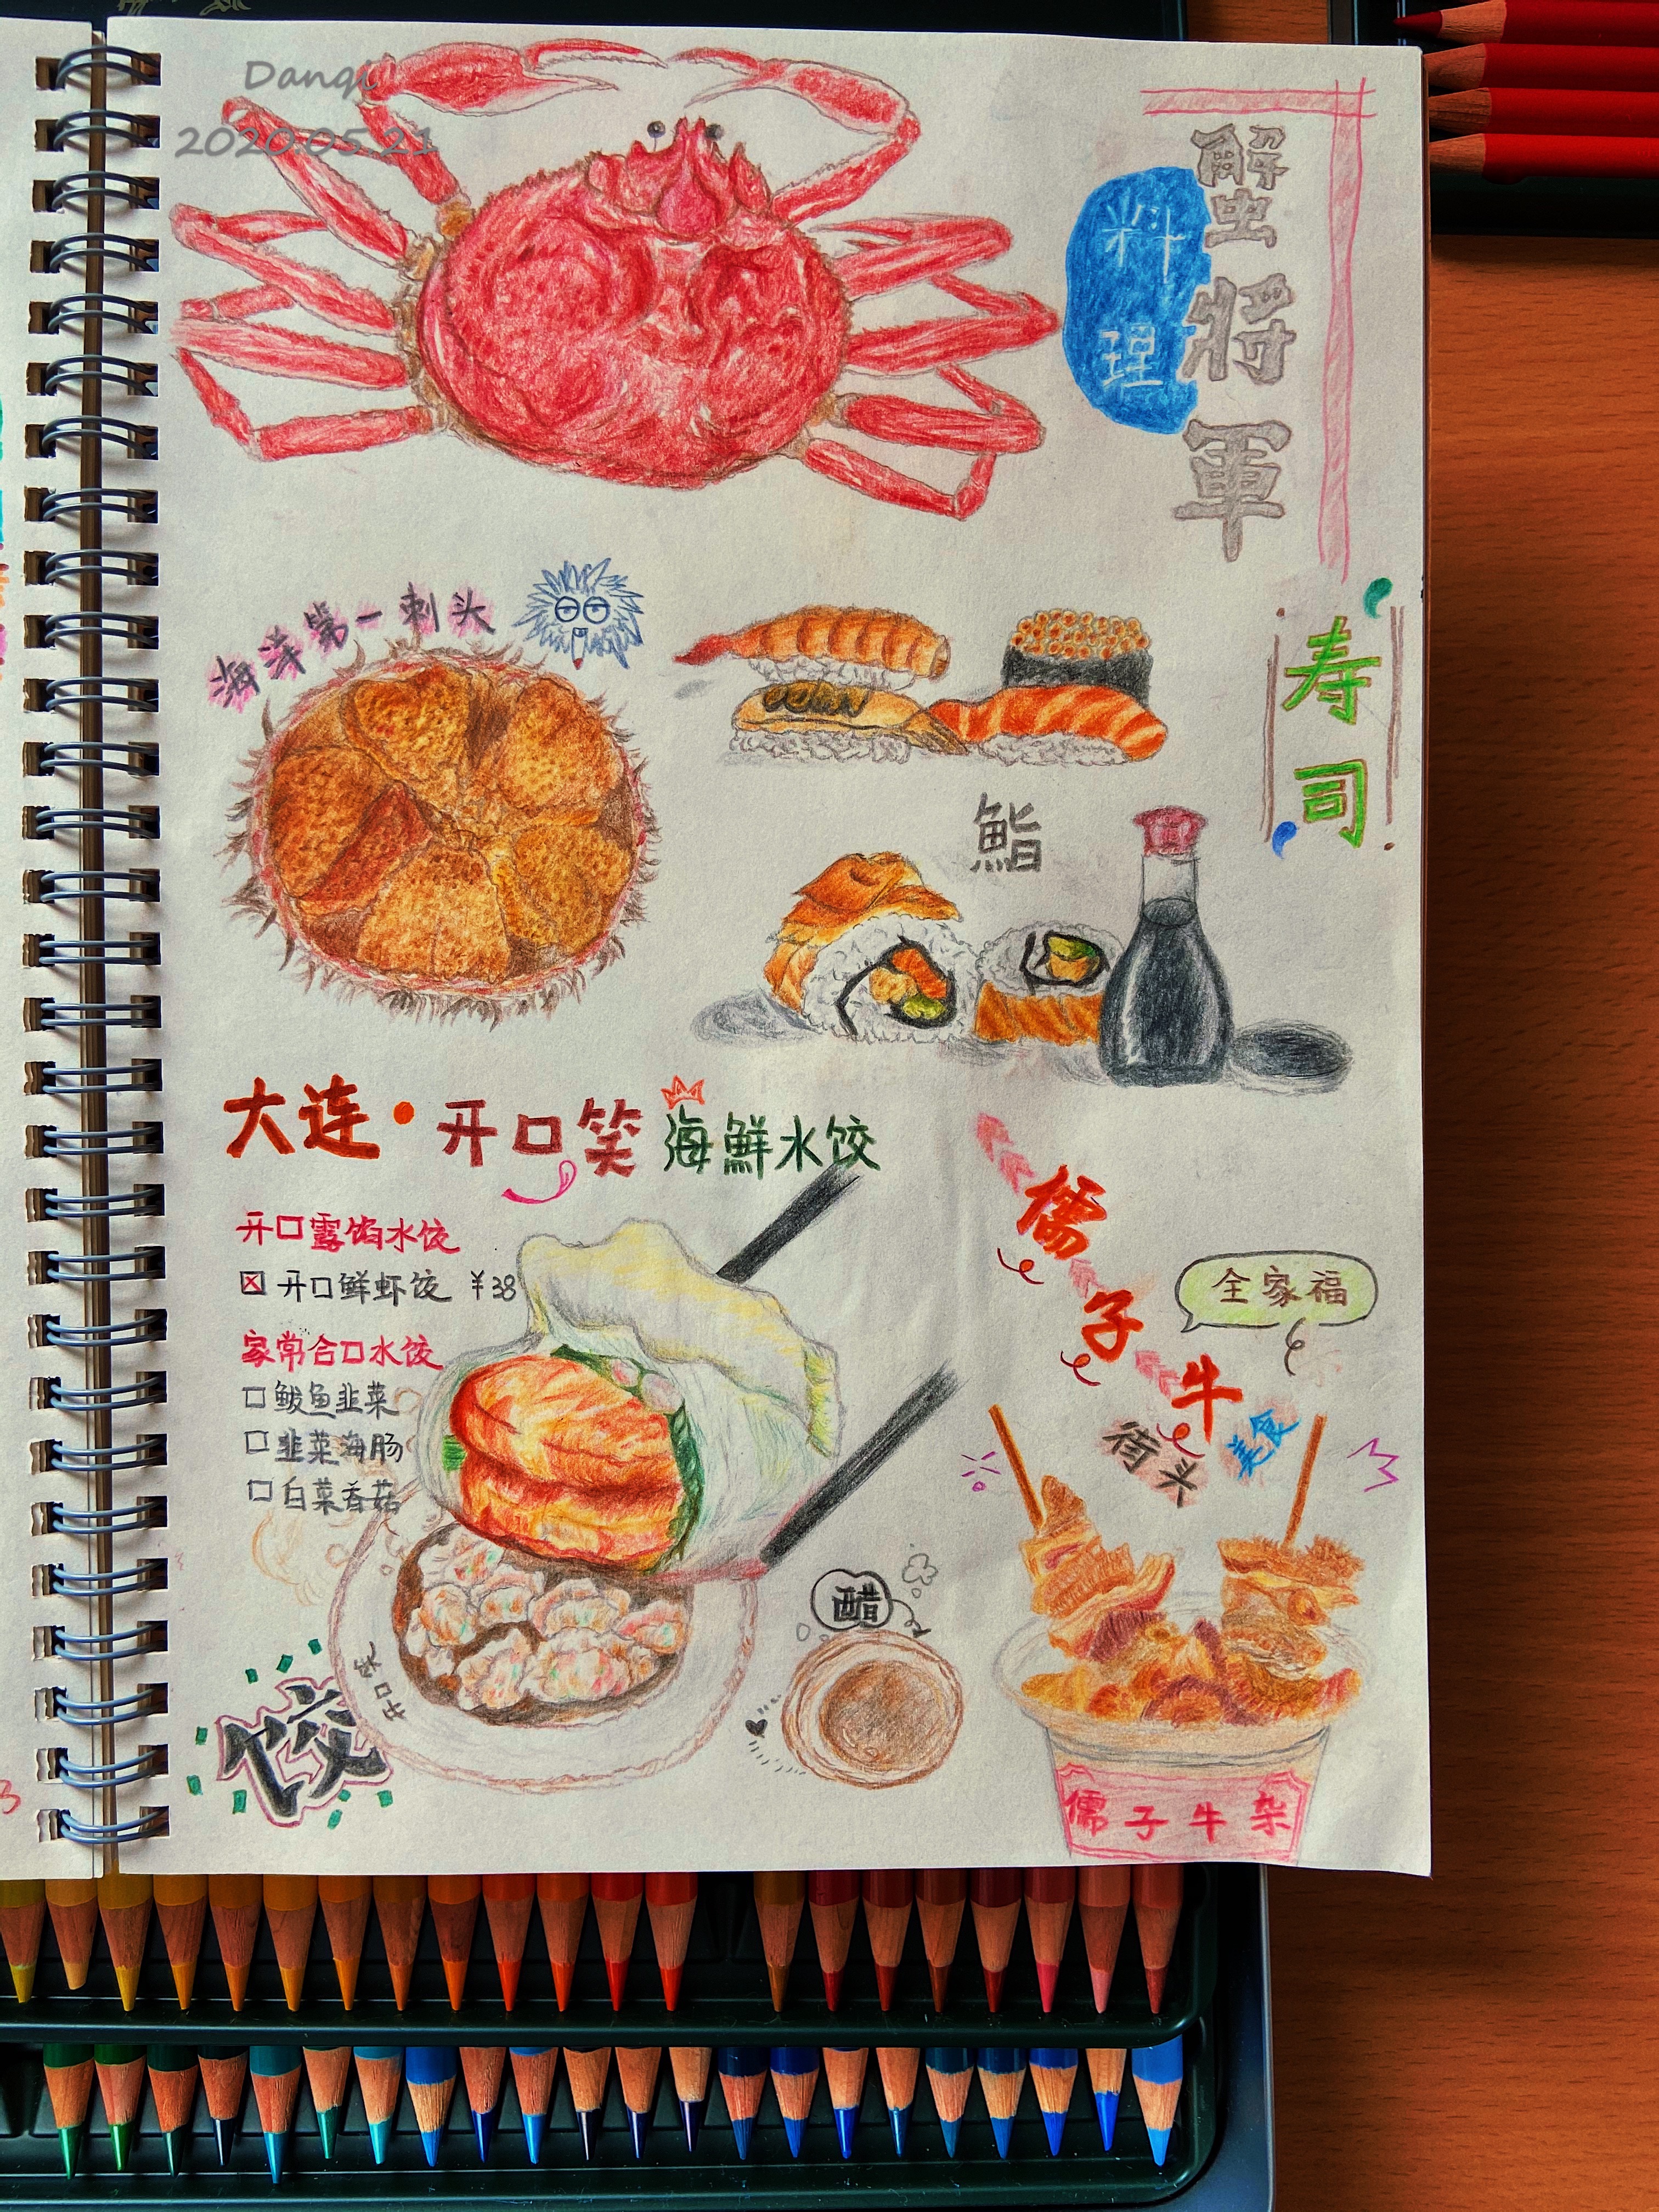 Danqi
2020.05.21
蟹將軍
料理
海洋第一刺头
寿司
鮨
大连·开口笑海鲜水饺
开口露馅水饺
☒ 开口鲜虾饺 ¥38
家常合口水饺
□ 鲅鱼韭菜
□ 韭菜海肠
□ 白菜香菇
儒子牛
全家福
街头美食
醋
开口笑
饺
儒子牛杂